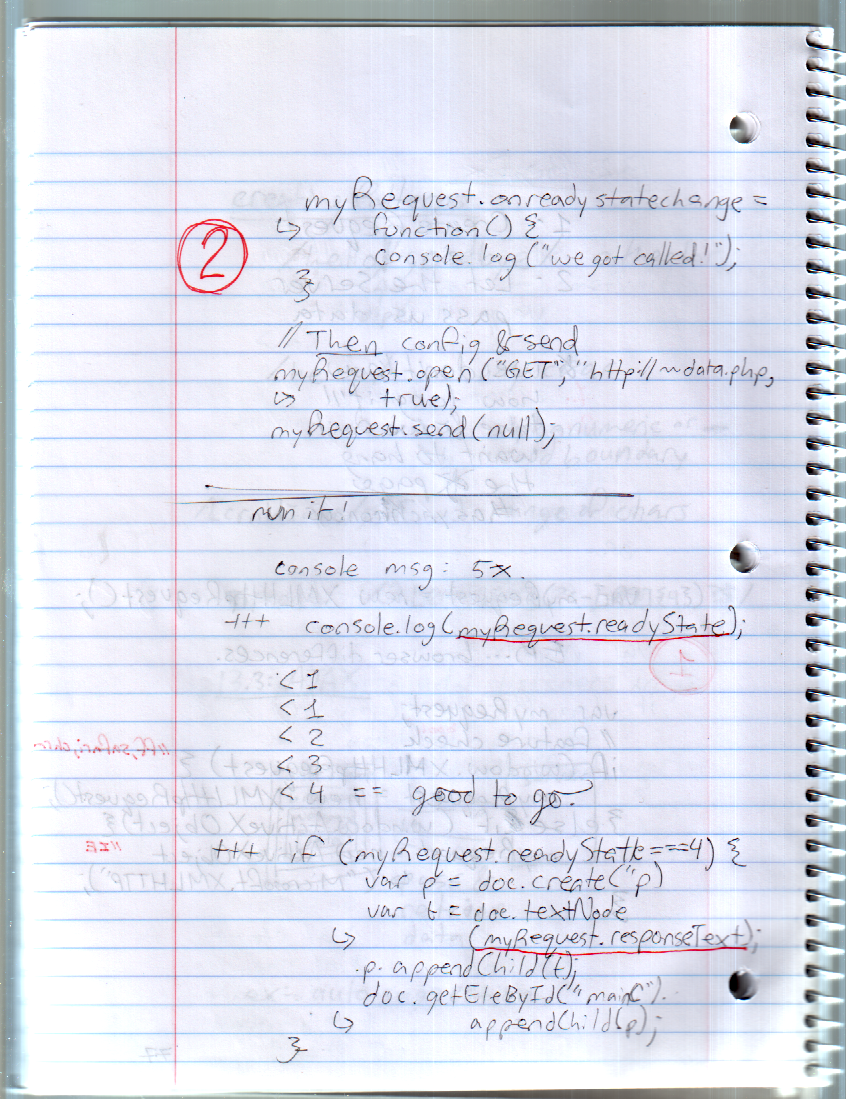 myRequest.onreadystatechange =
↳ function() {
② console.log("we got called!");
}
// Then config & send
myRequest.open("GET", "http://~data.php,
↳ true);
myRequest.send(null);
run it!
console msg: 5x.
+++ console.log(myRequest.readyState);
< 1
< 1
< 2
< 3
< 4 == good to go.
+++ if (myRequest.readyState===4) {
var p = doc.create("p)
var t = doc.textNode
↳ (myRequest.responseText);
p.appendChild(t);
doc.getEleById("mainC").
↳ appendChild(p);
}